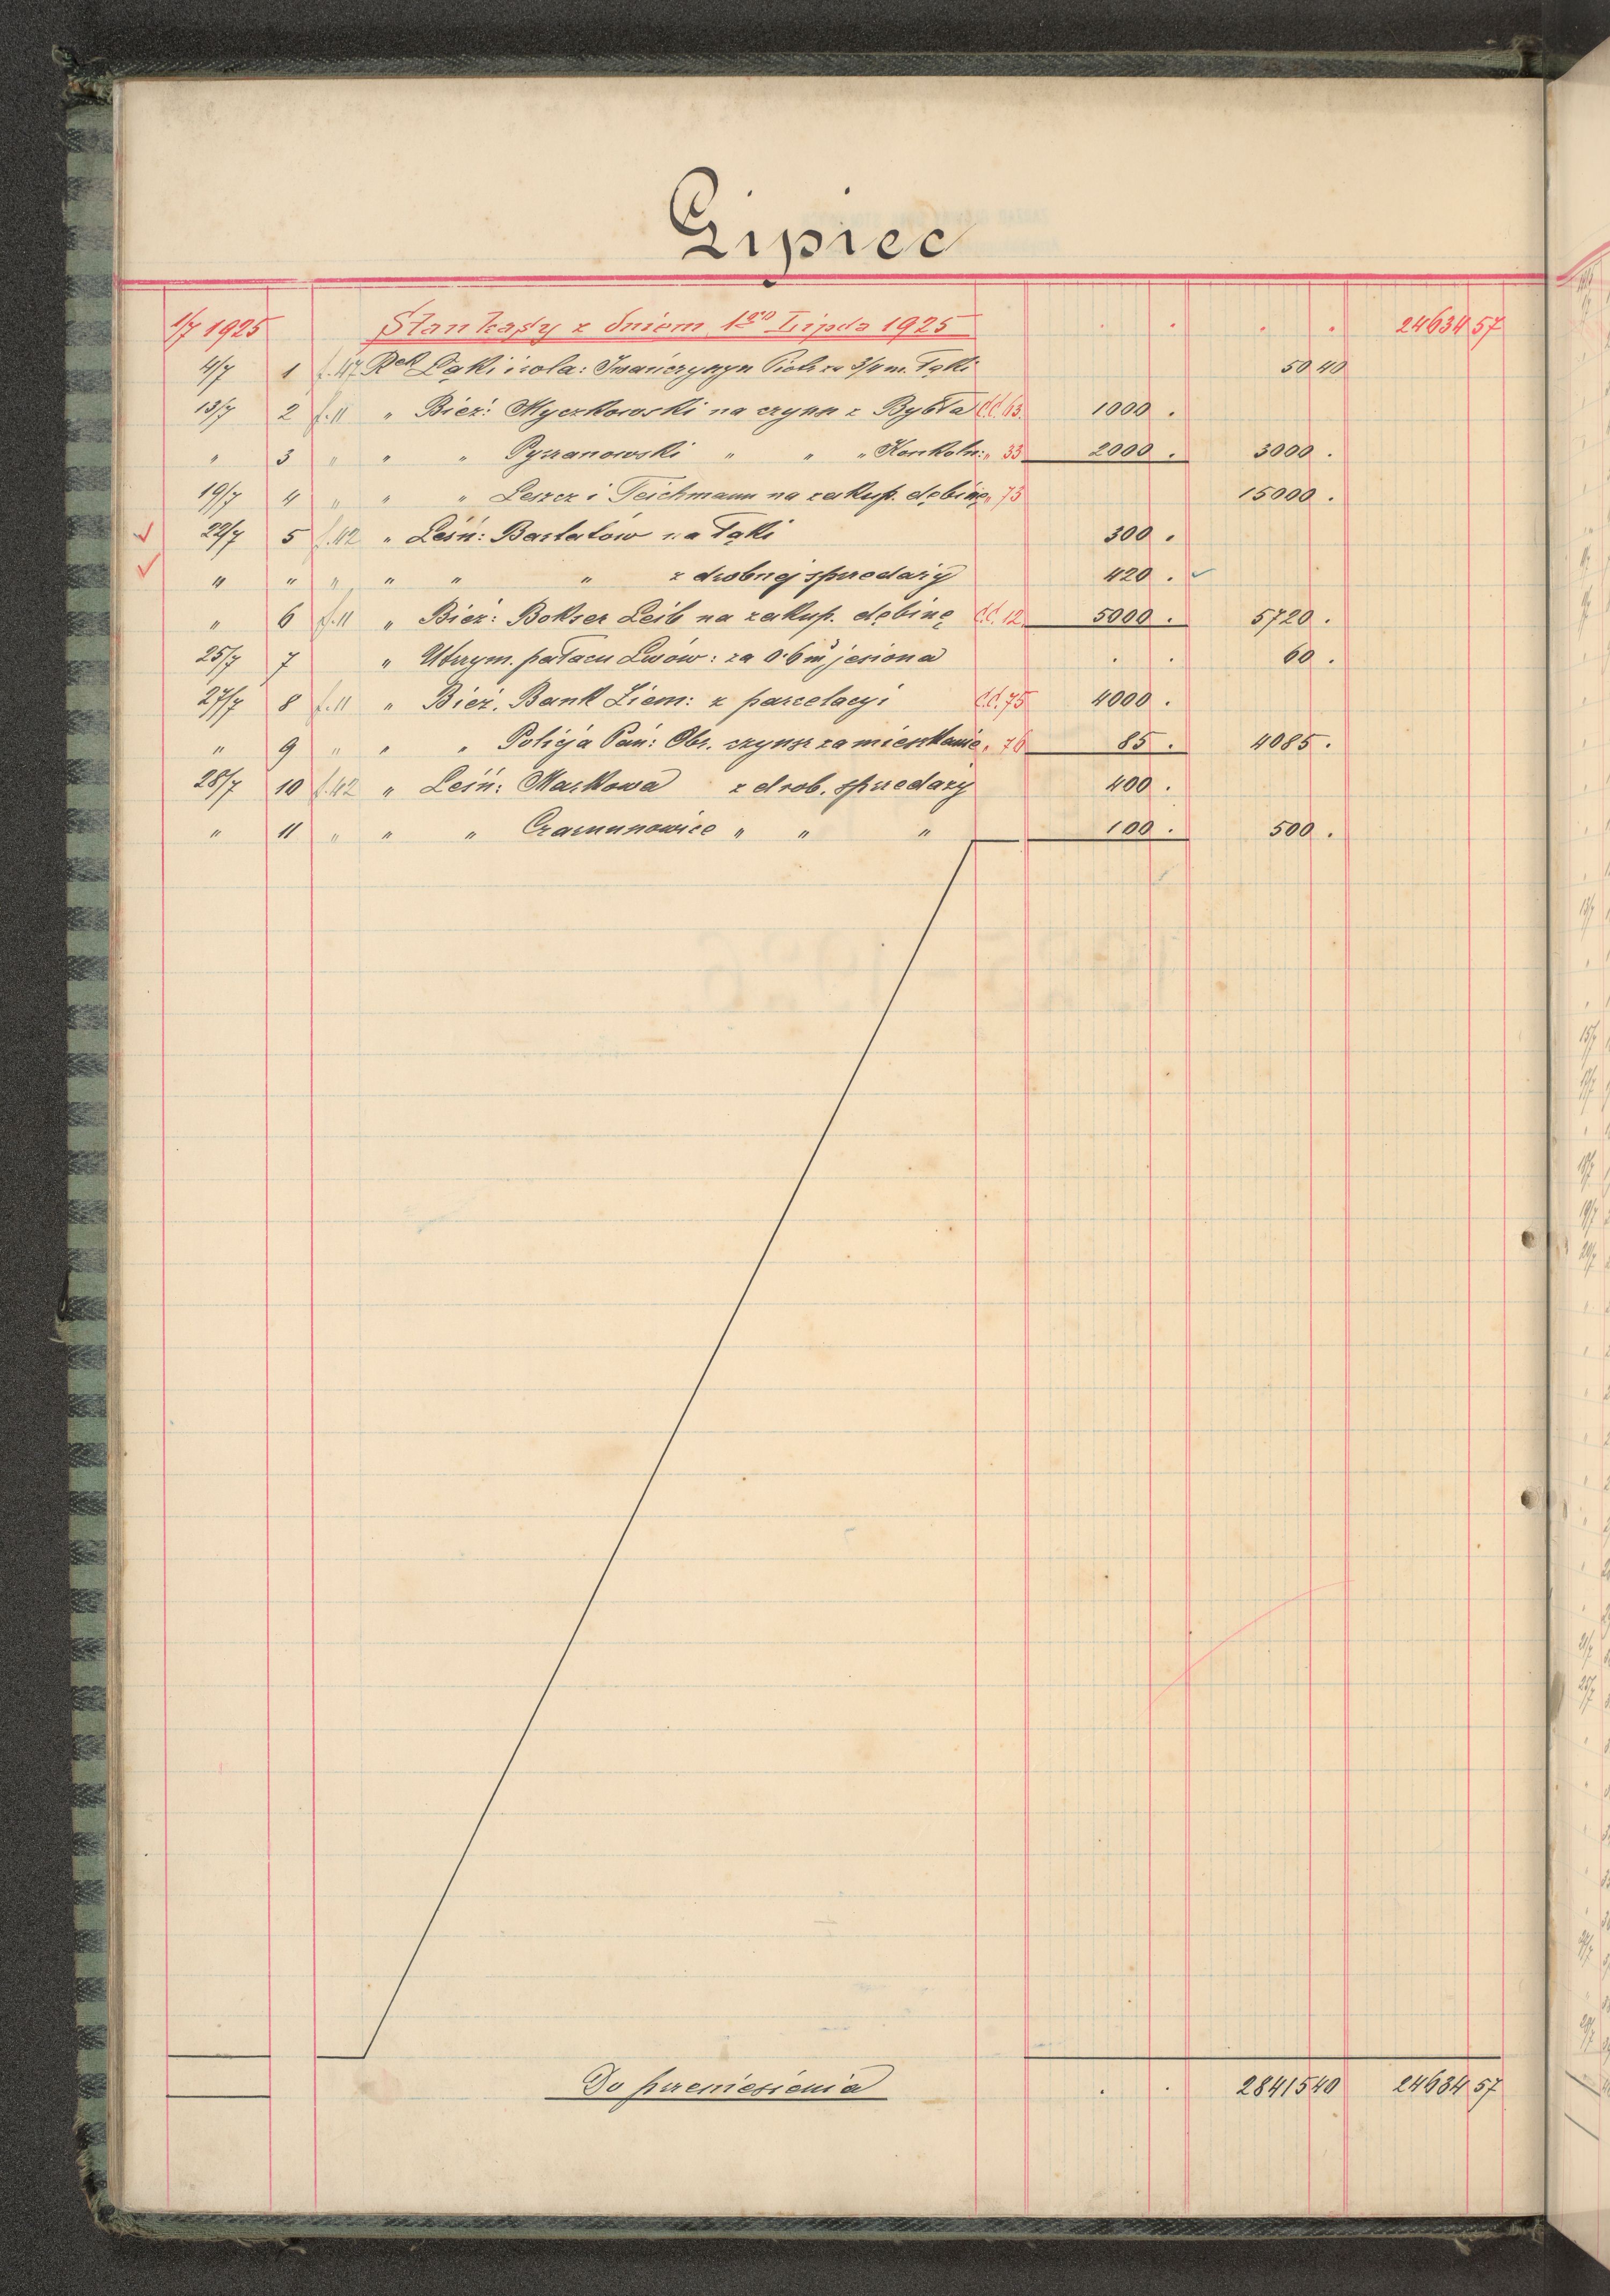 Lipiec
1/7 1925 Stan kasy z dniem 1go Lipca 1925 . . . . 24634 57
4/7 1 f.47 Rek Łąki i rola: Iwańczyszyn Piotr za 3/4 m. łąki 50 40
13/7 2 f.11 " Bież: Myczkowski na czynsz z Bybła C.C. 63. 1000 .
" 3 " " " Pyszanowski " " " Konkoln: " 33 2000 . 3000 .
19/7 4 " " " Leszcz i Teichmann na zakup. dębiny " 73 15000 .
22/7 5 f.42 " Leśn: Bartatów na łąki 300 .
" " " " " " z drobnej sprzedaży 420 .
" 6 f.11 " Bież: Bokser Leib na zakup. dębiny C.C. 12. 5000 . 5720 .
25/7 7 " Utrzym. pałacu Lwów: za 0.6 m jesiona . . 60 .
27/7 8 f.11 " Bież. Bank Ziem: z parcelacyi C.C. 75 4000 .
" 9 " " " Policja Pań: Obr. czynsz za mieszkanie " 76 85 . 4085 .
28/7 10 f.42 " Leśn: Markowa z drob. sprzedaży 400 .
" 11 " " " " " " 100 . 500 .
Do przeniesienia . . 28415 40 24634 57